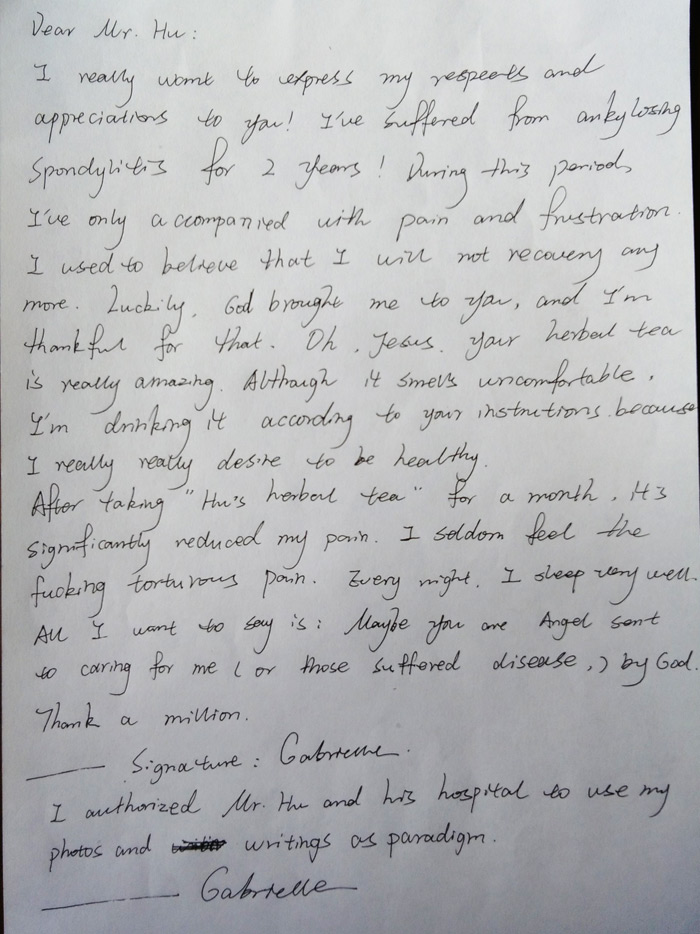 Dear Mr. Hu:
I really want to express my respects and
appreciations to you! I've suffered from ankylosing
spondylitis for 2 years! During this period,
I've only accompanied with pain and frustration.
I used to believe that I will not recovery any
more. Luckily, God brought me to you, and I'm
thankful for that. Oh, Jesus, your herbal tea
is really amazing. Although it smells uncomfortable,
I'm drinking it according to your instrutions because
I really really desire to be healthy.
After taking "Hu's herbal tea" for a month, it's
significantly reduced my pain. I seldom feel the
fucking torturous pain. Every night, I sleep very well.
All I want to say is: Maybe you are Angel sent
to caring for me (or those suffered disease,) by God.
Thank a million.
—— Signature: Gabrielle.
I authorized Mr. Hu and his hospital to use my
photos and writings as paradigm.
—— Gabrielle